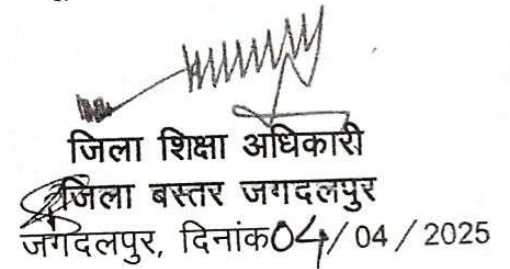 जिला शिक्षा अधिकारी
जिला बस्तर जगदलपुर
जगदलपुर, दिनांक04/ 04 / 2025